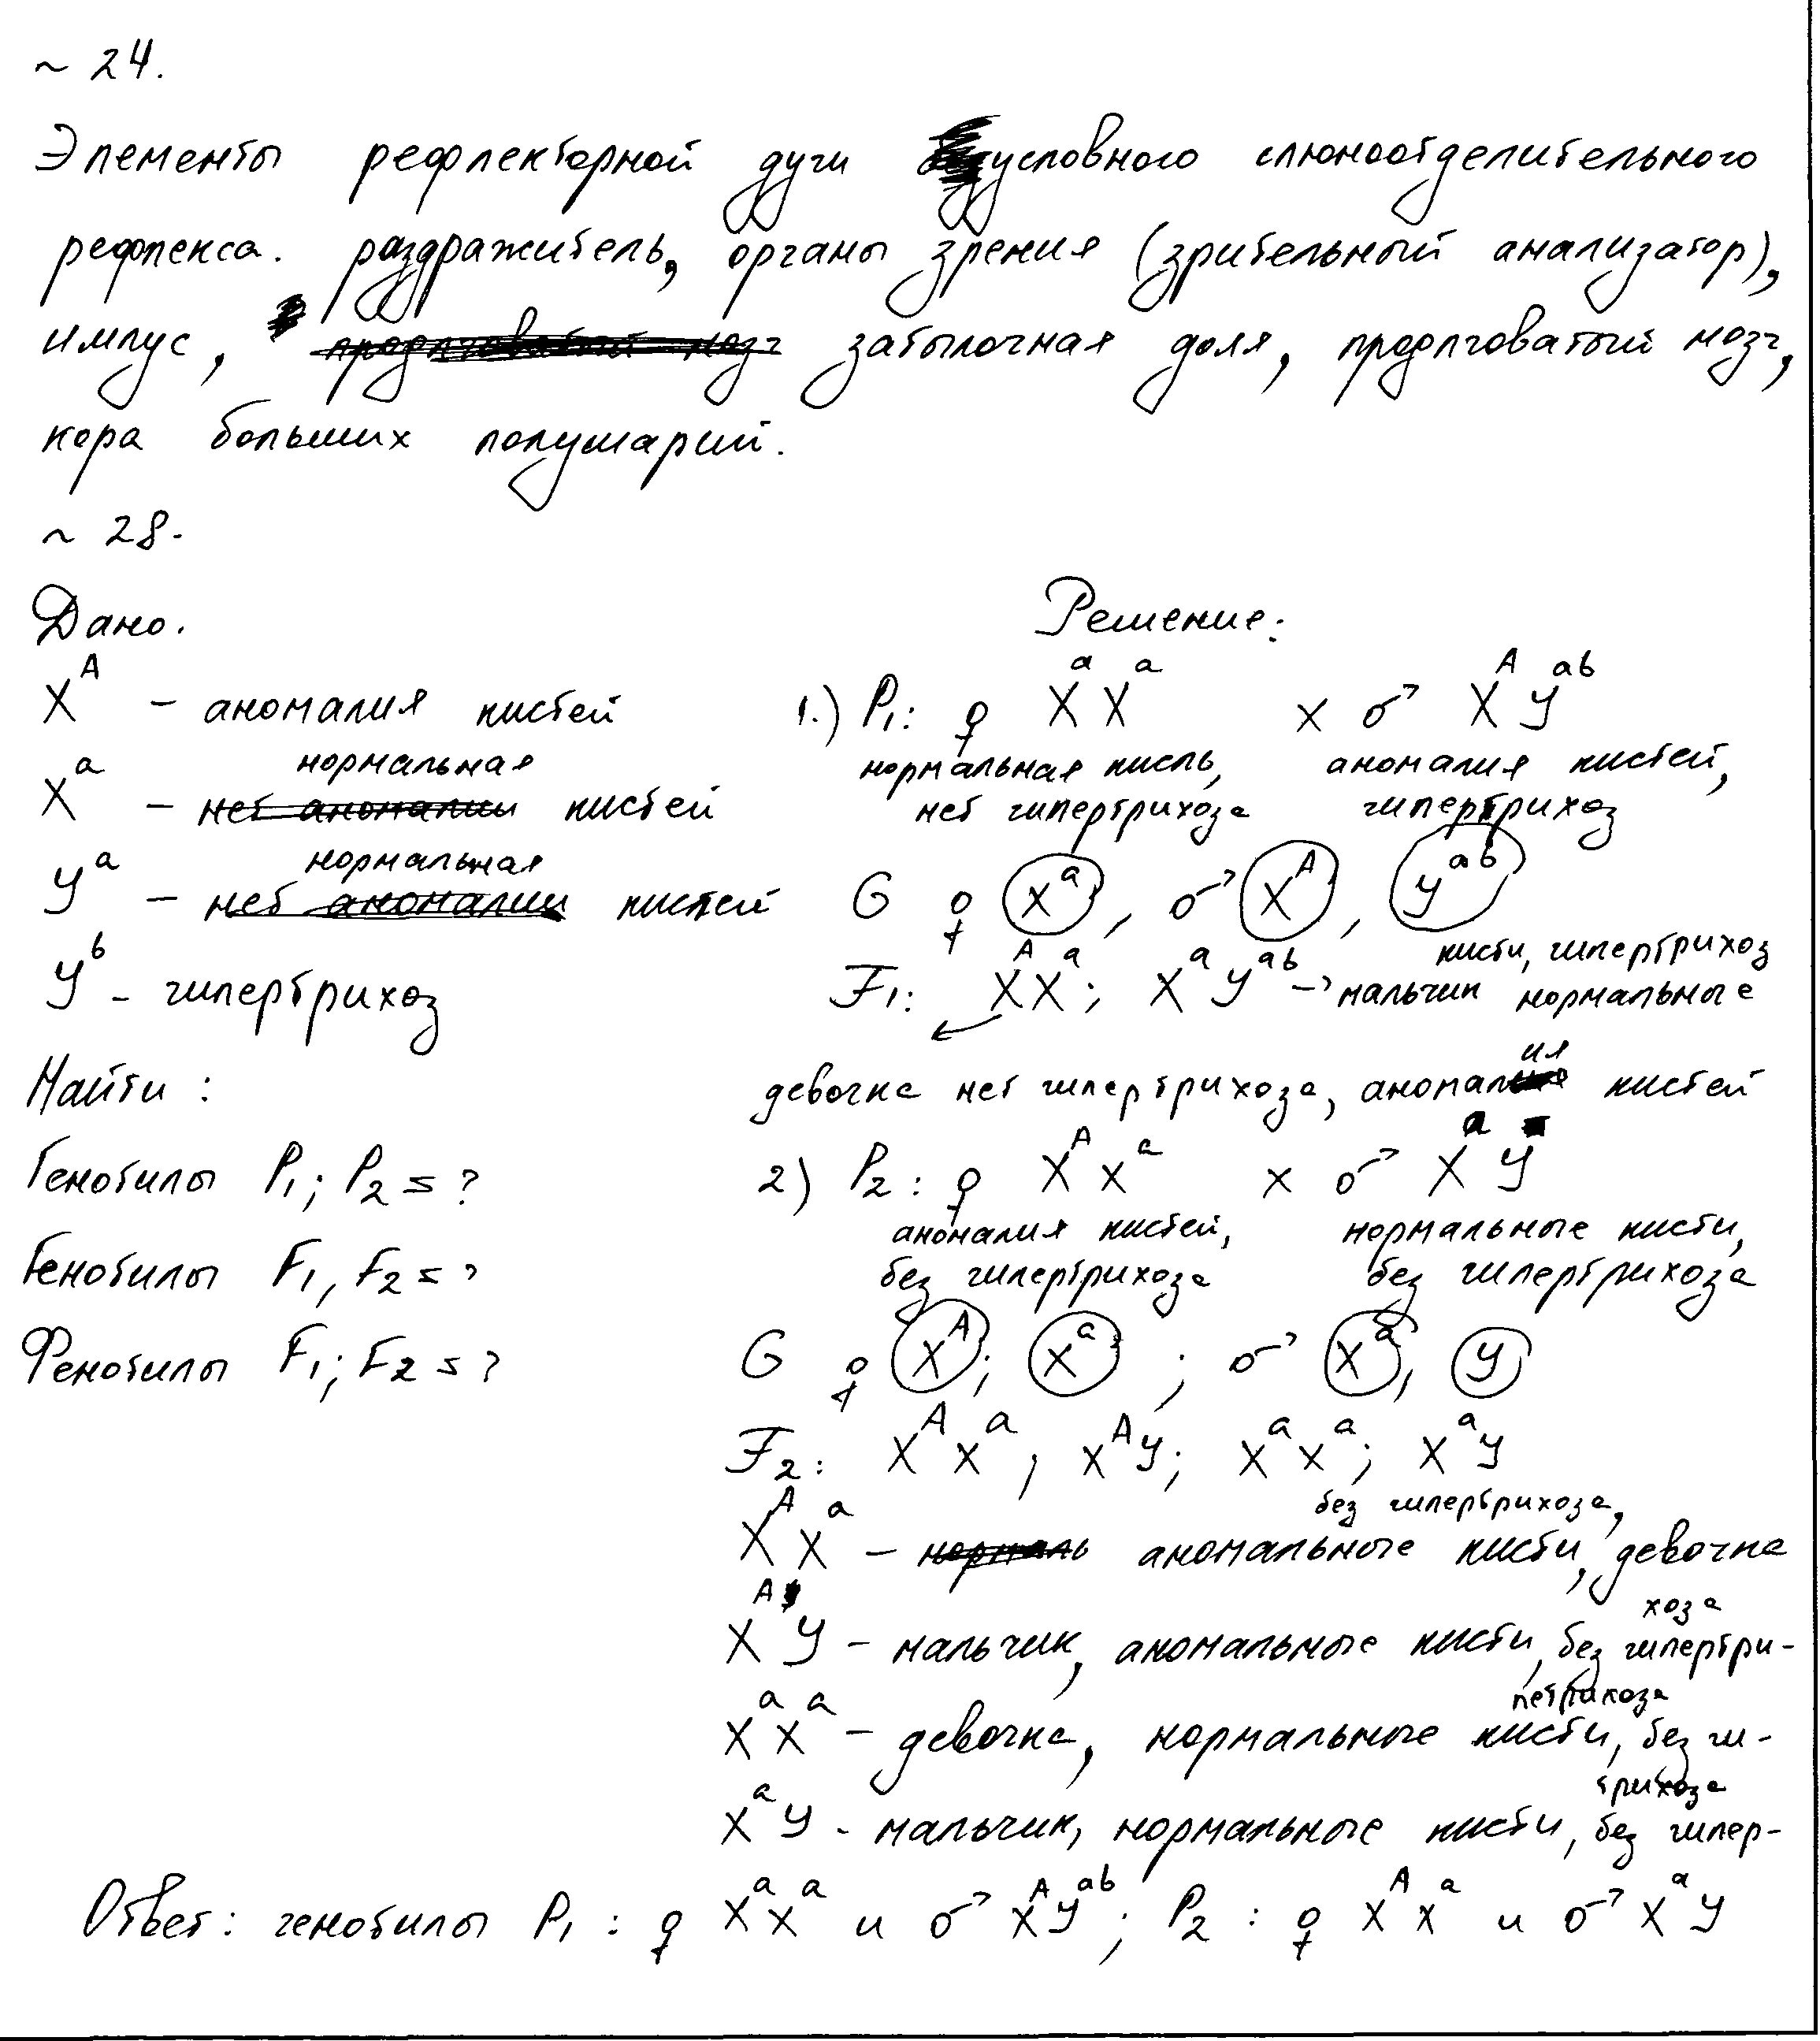 ~ 24.
Элементы рефлекторной дуги условного слюноотделительного
рефлекса. раздражитель, органы зрения (зрительный анализатор),
импус, продлговатый мозг затылочная доля, продлговатый мозг,
кора больших полушарий.
~ 28.
Дано.
X^A – аномалия кистей
X^a – нет аномалии нормальная кистей
У^a – нет аномалии нормальная кистей
У^b – гипертрихоз
Найти :
Генотипы P1; P2 = ?
Генотипы F1, F2 = ?
Фенотипы F1; F2 = ?
Решение:
1.) P1: ♀ X^a X^a × ♂ X^A У^ab
нормальная кисль, аномалия кистей,
нет гипертрихоза гипертрихоз
G ♀ X^a, ♂ X^A, У^ab
F1: X^A X^a; X^a У^ab → мальчик нормальные кисти, гипертрихоз
девочка нет гипертрихоза, аномалия кистей
2) P2: ♀ X^A X^a × ♂ X^a У
аномалия кистей, нормальные кисти,
без гипертрихоза без гипертрихоза
G ♀ X^A; X^a ; ♂ X^a, У
F2: X^A X^a; X^A У; X^a X^a; X^a У
X^A X^a – нормаль аномальные кисти, без гипертрихоза, девочка
X^A У – мальчик, аномальные кисти, без гипертри-хоза
X^a X^a – девочка, нормальные кисти, без ги-петрихоза
X^a У - мальчик, нормальные кисти, без гипер-трихоза
Ответ: генотипы P1 : ♀ X^a X^a и ♂ X^A У^ab; P2 : ♀ X^A X^a и ♂ X^a У